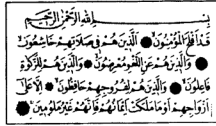 بِسْمِ اللهِ الرَّحْمٰنِ الرَّحِيْمِ
قَدْ اَفْلَحَ الْمُؤْمِنُوْنَ الَّذِيْنَ هُمْ فِيْ صَلَاتِهِمْ خَاشِعُوْنَ
وَالَّذِيْنَ هُمْ عَنِ اللَّغْوِ مُعْرِضُوْنَ وَالَّذِيْنَ هُمْ لِلزَّكٰوةِ
فَاعِلُوْنَ وَالَّذِيْنَ هُمْ لِفُرُوْجِهِمْ حَافِظُوْنَ اِلَّا عَلٰٓى
اَزْوَاجِهِمْ اَوْ مَا مَلَكَتْ اَيْمَانُهُمْ فَاِنَّهُمْ غَيْرُ مَلُوْمِيْنَ